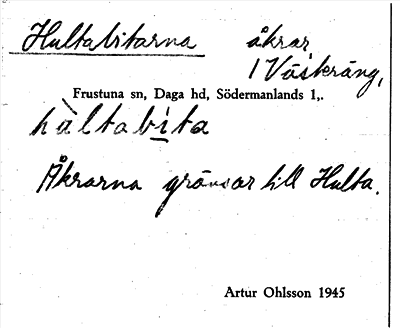 Hultabitarna åkrar,
/ Västeräng,
Frustuna sn, Daga hd, Södermanlands l,.
hàltabita
Åkrarna gränsar till Hulta.
Artur Ohlsson 1945